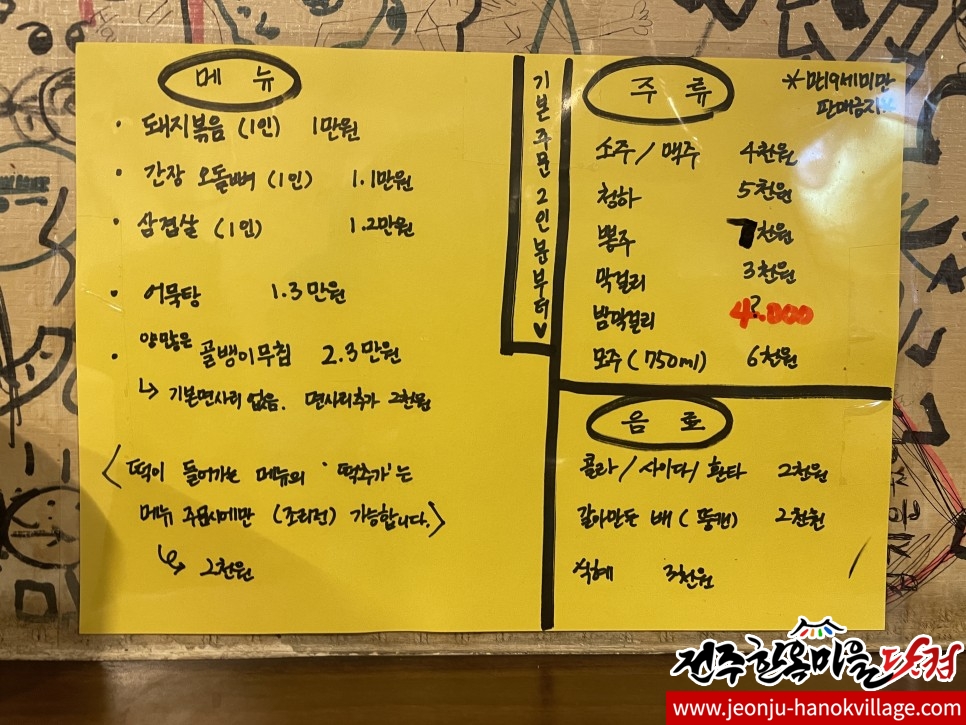 메뉴
· 돼지볶음 (1인) 1만원
· 간장 오돌뼈 (1인) 1.1만원
· 삼겹살 (1인) 1.2만원
· 어묵탕 1.3만원
· 양많은 골뱅이무침 2.3만원
↳ 기본면사리 없음. 면사리추가 2천원
〈떡이 들어가는 메뉴의 '떡추가'는
메뉴 주문시에만 (조리전) 가능합니다.〉
↳ 2천원
기본주문 2인분부터♥
주류
*만19세미만
판매금지*
소주 / 맥주 4천원
청하 5천원
뽕주 7천원
막걸리 3천원
밤막걸리 4.000
모주 (750ml) 6천원
음료
콜라 / 사이다 / 환타 2천원
갈아만든 배 (뚱캔) 2천원
식혜 3천원
전주한옥마을닷컴
www.jeonju-hanokvillage.com